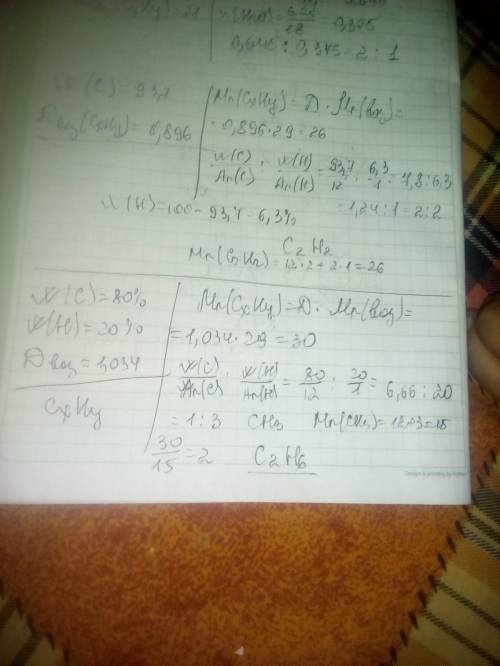 0,645 : 0,345 = 2 : 1
W(C) = 93,7
D воз(CxHy) = 0,896
Mr(CxHy) = D · Mr(воз) =
= 0,896 · 29 = 26
W(C)/Ar(C) : W(H)/Ar(H) = 93,7/12 : 6,3/1 = 7,8 : 6,3
W(H) = 100 - 93,7 = 6,3%
= 1,24 : 1 = 2 : 2
C2H2
Mr(C2H2) = 12 · 2 + 2 · 1 = 26
W(C) = 80%
W(H) = 20%
D воз = 1,034
CxHy
Mr(CxHy) = D · Mr(воз) =
= 1,034 · 29 = 30
W(C)/Ar(C) : W(H)/Ar(H) = 80/12 : 20/1 = 6,66 : 20
= 1 : 3 CH3 Mr(CH3) = 12+3 = 15
30/15 = 2 C2H6